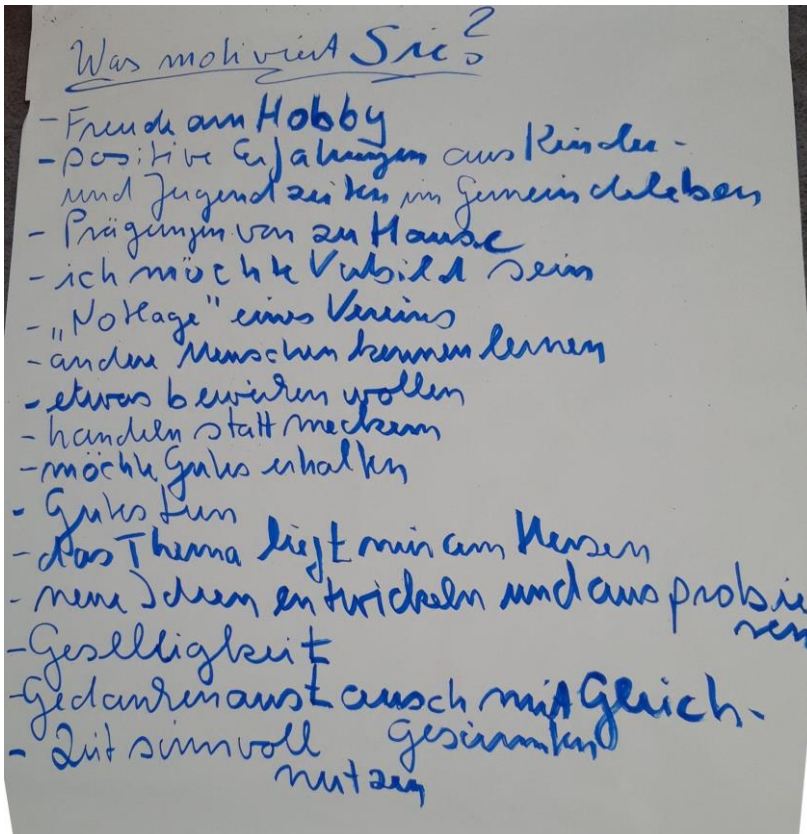 Was motiviert Sie?
- Freude am Hobby
- positive Erfahrungen aus Kinder-
und Jugendzeiten im Gemeindeleben
- Prägungen von zu Hause
- ich möchte Vorbild sein
- „Notlage" eines Vereins
- andere Menschen kennen lernen
- etwas bewirken wollen
- handeln statt meckern
- möchte Gutes erhalten
- Gutes tun
- das Thema liegt mir am Herzen
- neue Ideen entwickeln und ausprobie
ren
- Geselligkeit
- Gedankenaustausch mit Gleich-
gesinnten
- Zeit sinnvoll
nutzen